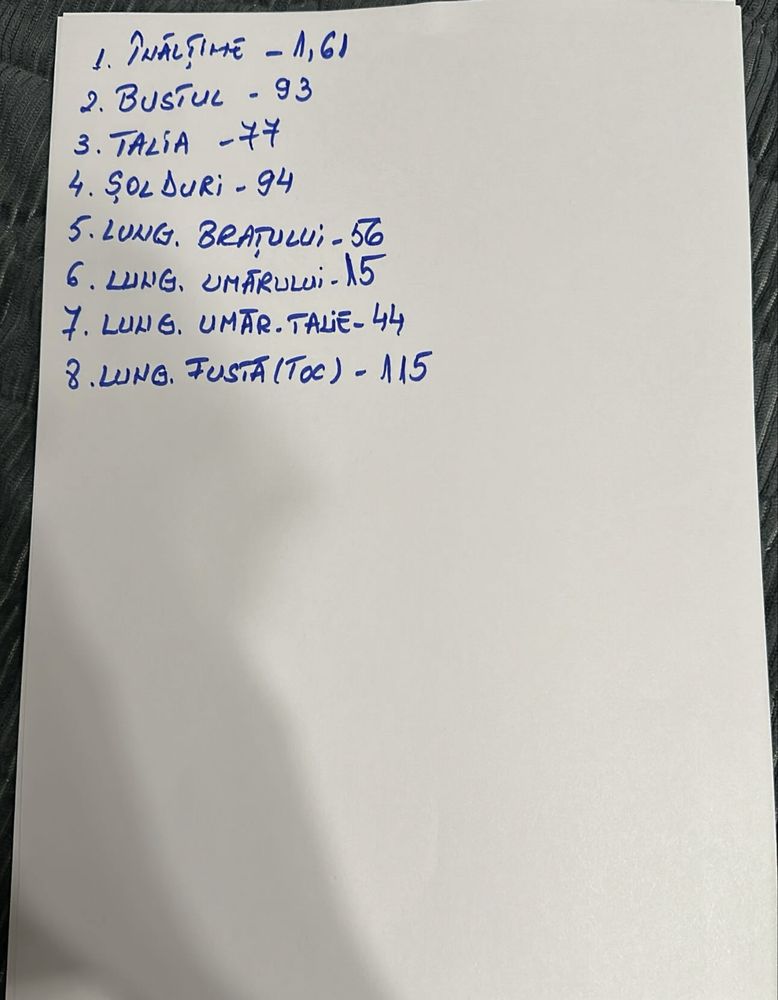 1. ÎNĂLȚIME - 1,61
2. BUSTUL - 93
3. TALIA - 77
4. ȘOLDURI - 94
5. LUNG. BRAȚULUI - 56
6. LUNG. UMĂRULUI - 15
7. LUNG. UMĂR. TALIE - 44
8. LUNG. FUSTĂ (TOC) - 115